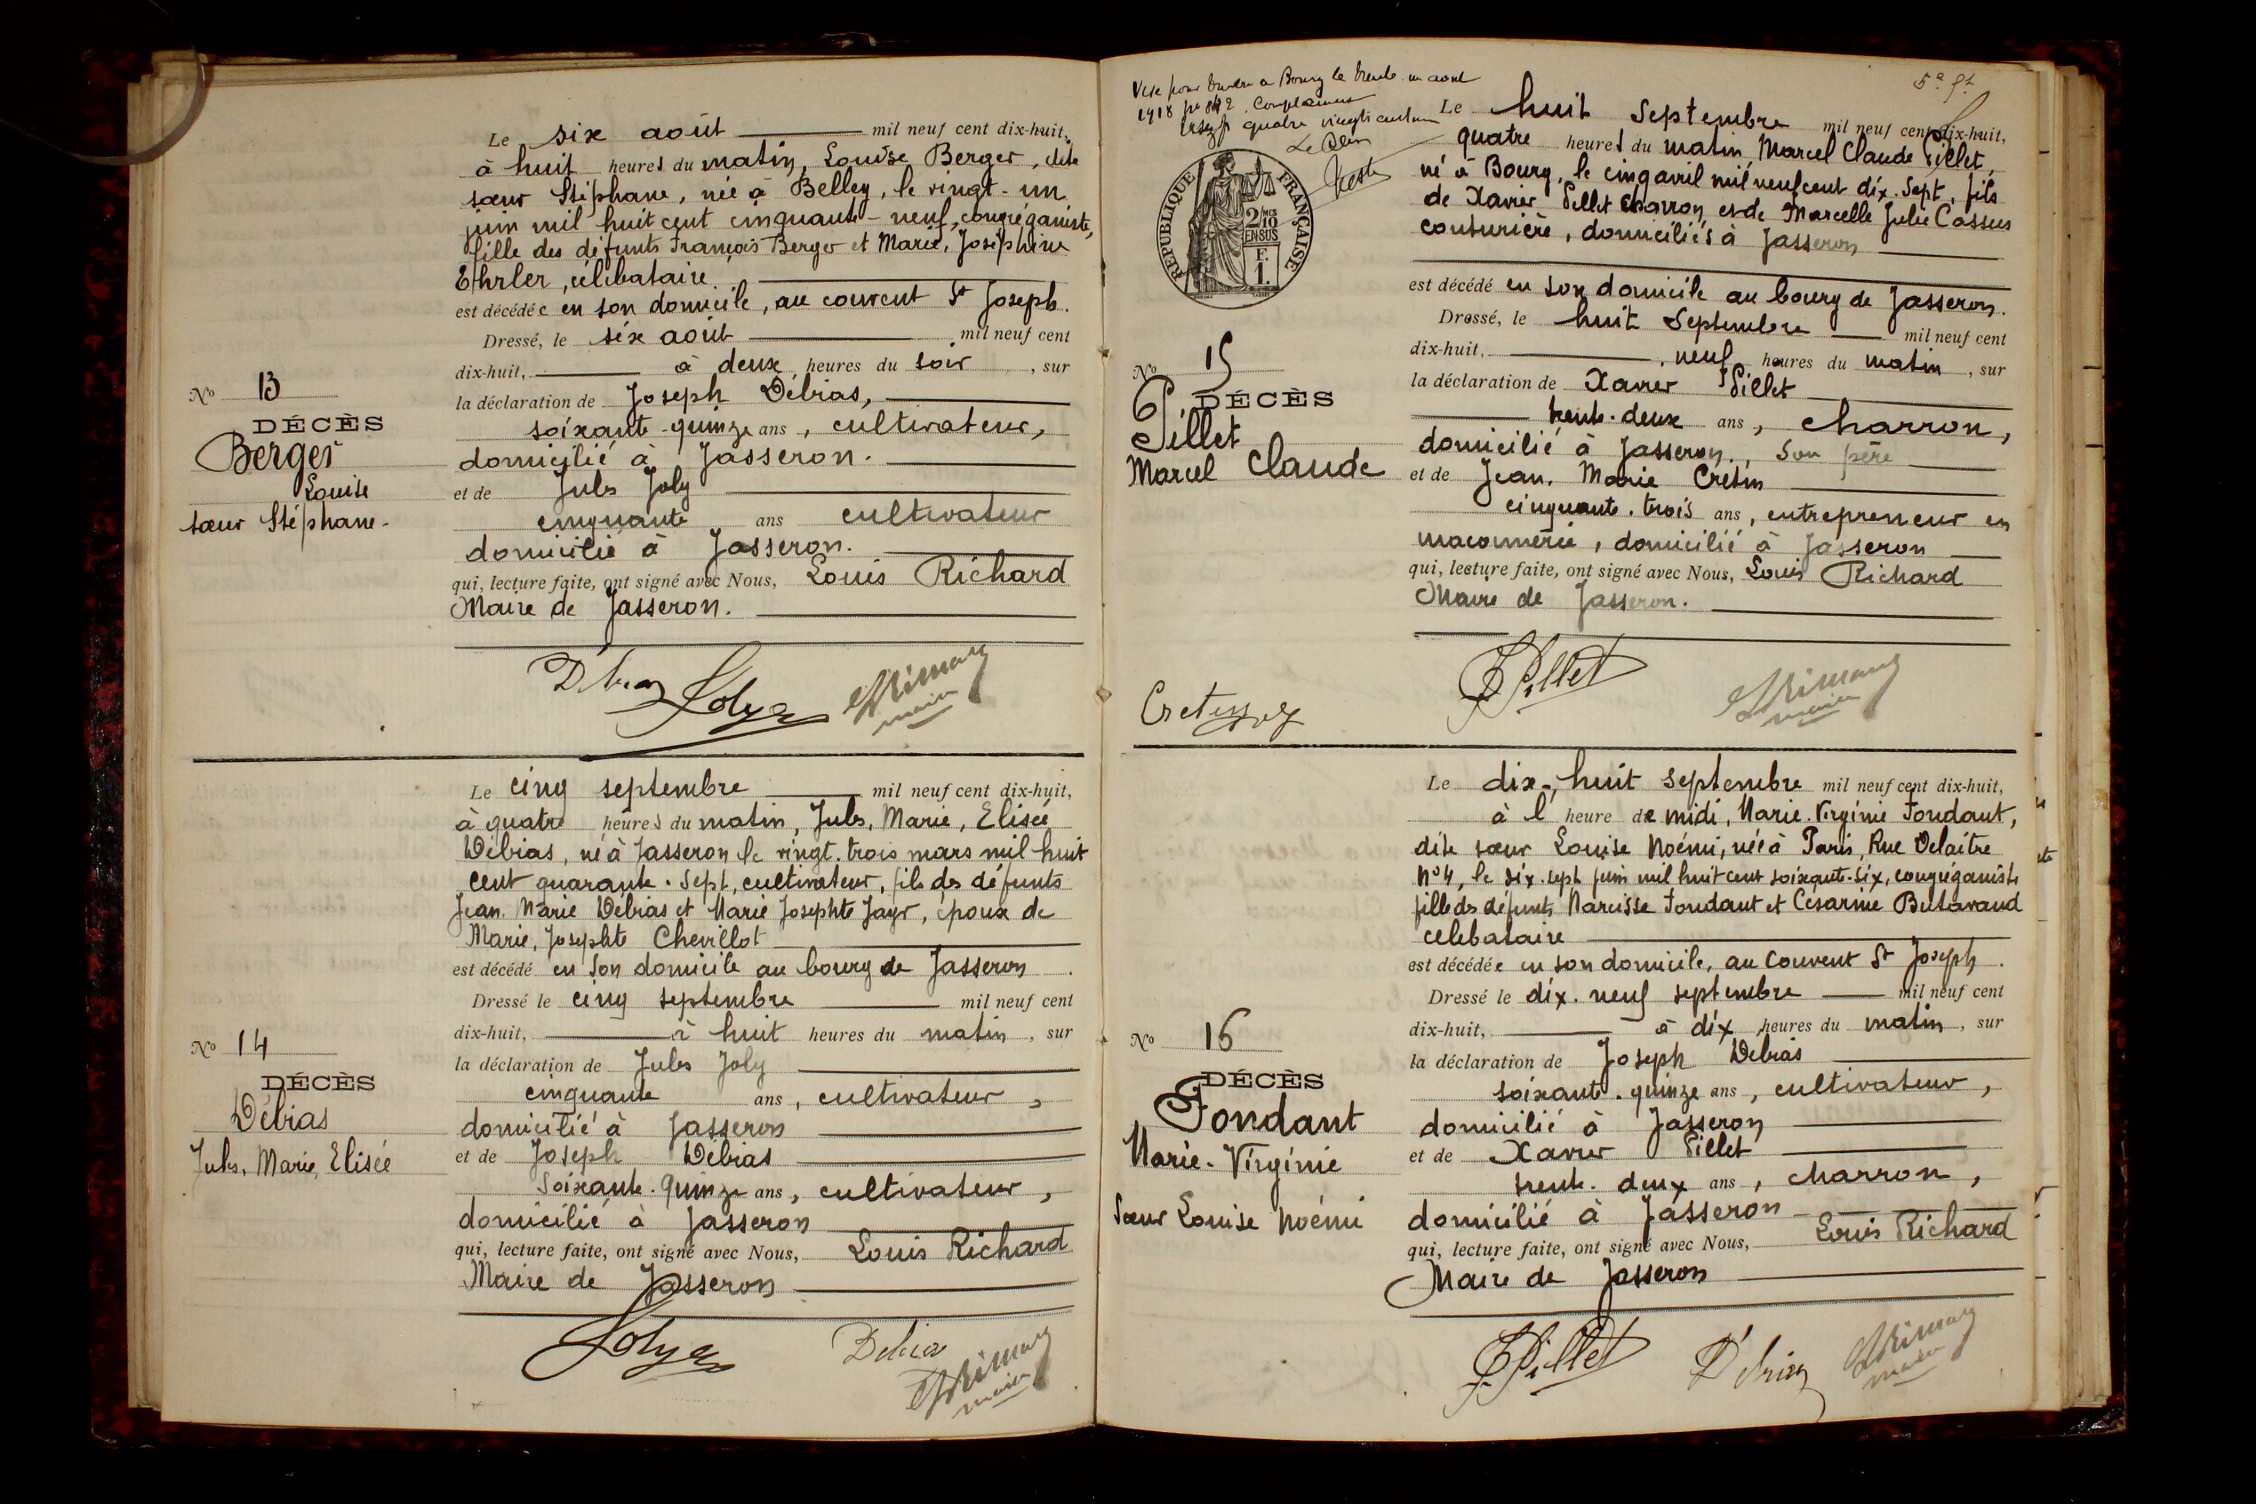 Le six août mil neuf cent dix-huit,
à huit heures du matin, Louise Berger, dite
sœur Stéphane, née à Belley, le vingt-un
juin mil huit cent cinquante-neuf, congréganiste,
fille des défunts François Berger et Marie, Joséphine
Ehrler, célibataire.
est décédée en son domicile, au couvent St Joseph.
Dressé, le six août mil neuf cent
dix-huit, à deux heures du soir, sur
la déclaration de Joseph Débias,
soixante-quinze ans, cultivateur,
domicilié à Jasseron.
et de Jules Joly
cinquante ans cultivateur
domicilié à Jasseron.
qui, lecture faite, ont signé avec Nous, Louis Richard
Maire de Jasseron.
No 13
DÉCÈS
Berger
Louise
sœur Stéphane-
Le cinq septembre mil neuf cent dix-huit,
à quatre heures du matin, Jules, Marie, Elisée
Débias, né à Jasseron le vingt-trois mars mil huit
cent quarante-sept, cultivateur, fils des défunts
Jean Marie Débias et Marie Josephte Jayr, époux de
Marie, Josephte Chevillot
est décédé en son domicile au bourg de Jasseron.
Dressé le cinq septembre mil neuf cent
dix-huit, à huit heures du matin, sur
la déclaration de Jules Joly
cinquante ans, cultivateur,
domicilié à Jasseron
et de Joseph Débias
soixante-quinze ans, cultivateur,
domicilié à Jasseron
qui, lecture faite, ont signé avec Nous, Louis Richard
Maire de Jasseron
No 14
DÉCÈS
Débias
Jules, Marie, Elisée
5e ft
Visé pour timbre a Bourg le trente un août
1918
quatre vingt centimes
RÉPUBLIQUE FRANÇAISE
2/10 EN SUS
F. 1.
Le huit Septembre mil neuf cent dix-huit,
quatre heures du matin Marcel Claude Pillet,
né à Bourg, le cinq avril mil neuf cent dix-sept, fils
de Xavier Pillet charron et de Marcelle Julie Cassus
couturière, domiciliés à Jasseron
est décédé en son domicile au bourg de Jasseron.
Dressé, le huit Septembre mil neuf cent
dix-huit, neuf heures du matin, sur
la déclaration de Xavier Pillet
trente-deux ans, charron,
domicilié à Jasseron, son père
et de Jean, Marie Cretin
cinquante-trois ans, entrepreneur en
maconnerie, domicilié à Jasseron
qui, lecture faite, ont signé avec Nous, Louis Richard
Maire de Jasseron.
No 15
DÉCÈS
Pillet
Marcel Claude
Pillet
Le dix-huit septembre mil neuf cent dix-huit,
à l' heure de midi, Marie-Virginie Fondant,
dite sœur Louise Noémi, née à Paris, Rue Delaitre
No 4, le dix-sept juin mil huit cent soixante-six, congréganiste
fille des défunts Narcisse Fondant et Césarine Butavand
célibataire
est décédée en son domicile, au couvent St Joseph.
Dressé le dix-neuf septembre mil neuf cent
dix-huit, à dix heures du matin, sur
la déclaration de Joseph Débias
soixante-quinze ans, cultivateur,
domicilié à Jasseron
et de Xavier Pillet
trente-deux ans, charron,
domicilié à Jasseron
qui, lecture faite, ont signé avec Nous, Louis Richard
Maire de Jasseron
No 16
DÉCÈS
Fondant
Marie-Virginie
Sœur Louise Noémi
Pillet